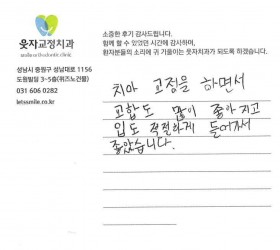 웃자교정치과
smile orthodontic clinic
성남시 중원구 성남대로 1156
도원빌딩 3-5층(위즈노건물)
031 606 0282
letssmile.co.kr
소중한 후기 감사드립니다.
함께 할 수 있었던 시간에 감사하며,
환자분들의 소리에 귀 기울이는 웃자치과가 되도록 하겠습니다.
치아 교정을 하면서
교합도 많이 좋아지고
입도 적절하게 들어가서
좋았습니다.